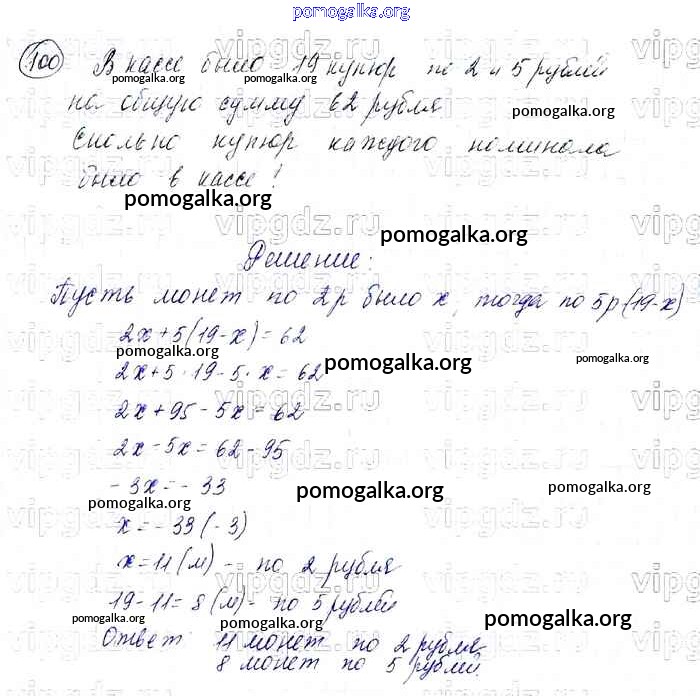 pomogalka.org
100 В кассе было 19 купюр по 2 и 5 рублей
на общую сумму 62 рубля
Сколько купюр каждого номинала
было в кассе!
Решение:
Пусть монет по 2р было x, тогда по 5р (19-x)
2x+5(19-x)=62
2x+5·19-5·x=62
2x+95-5x=62
2x-5x=62-95
-3x=-33
x=-33(-3)
x=11(м) - по 2 рубля
19-11=8(м)- по 5 рублей
Ответ 11 монет по 2 рубля
8 монет по 5 рублей.
pomogalka.org
pomogalka.org
pomogalka.org
pomogalka.org
pomogalka.org
pomogalka.org
pomogalka.org
pomogalka.org
pomogalka.org
pomogalka.org
pomogalka.org
pomogalka.org
pomogalka.org
pomogalka.org
vipgdz.ru
vipgdz.ru
vipgdz.ru
vipgdz.ru